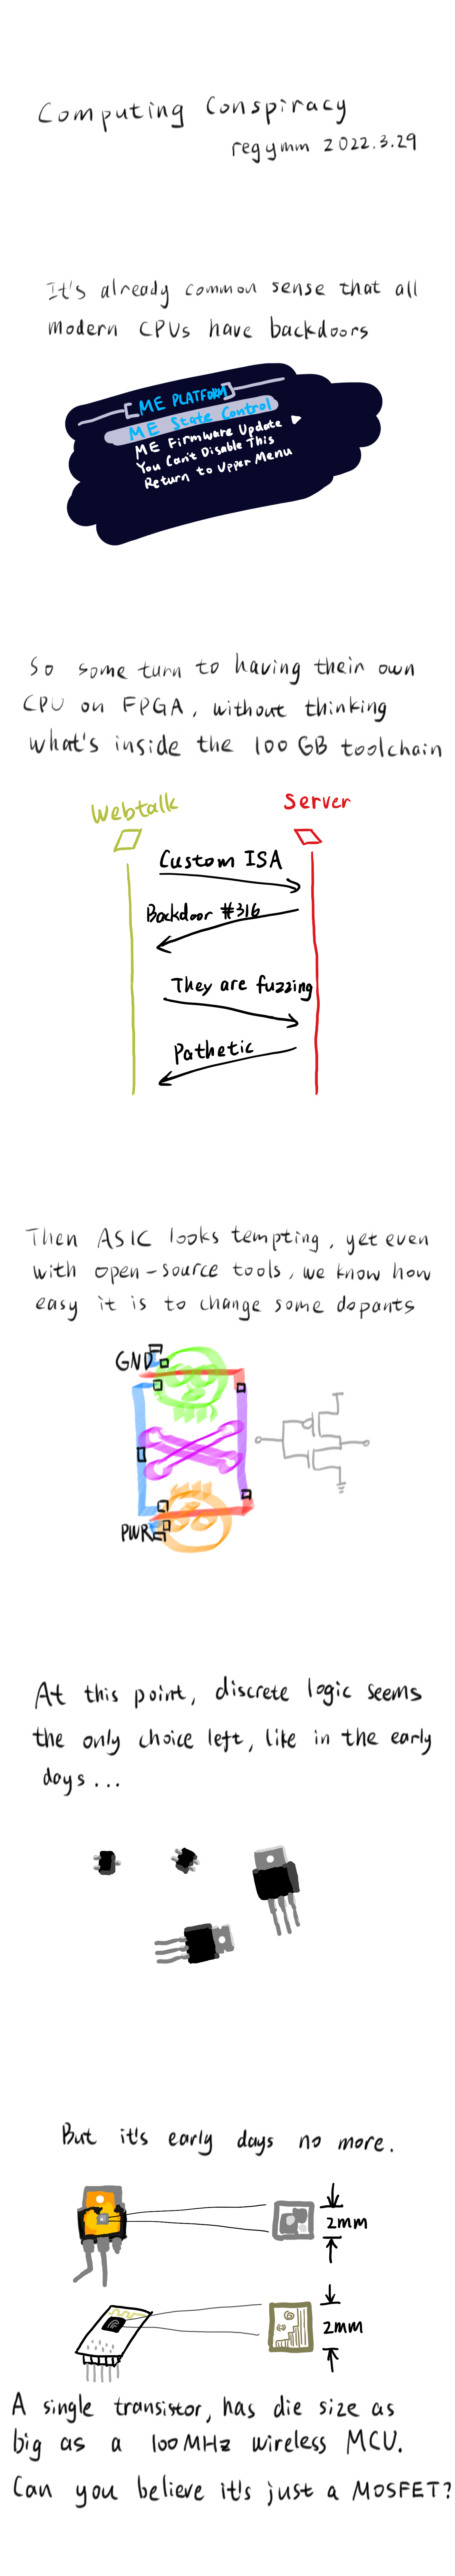 Computing Conspiracy
regymm 2022.3.29
It's already common sense that all
modern CPUs have backdoors
[ME PLATFORM]
ME State Control
ME Firmware Update ▶
You Can't Disable This
Return to Upper Menu
So some turn to having their own
CPU on FPGA, without thinking
what's inside the 100 GB toolchain
Webtalk
Server
Custom ISA
Backdoor #316
They are fuzzing
Pathetic
Then ASIC looks tempting, yet even
with open-source tools, we know how
easy it is to change some dopants
GND
PWR
At this point, discrete logic seems
the only choice left, like in the early
days...
But it's early days no more.
2mm
2mm
A single transistor, has die size as
big as a 100MHz wireless MCU.
Can you believe it's just a MOSFET?